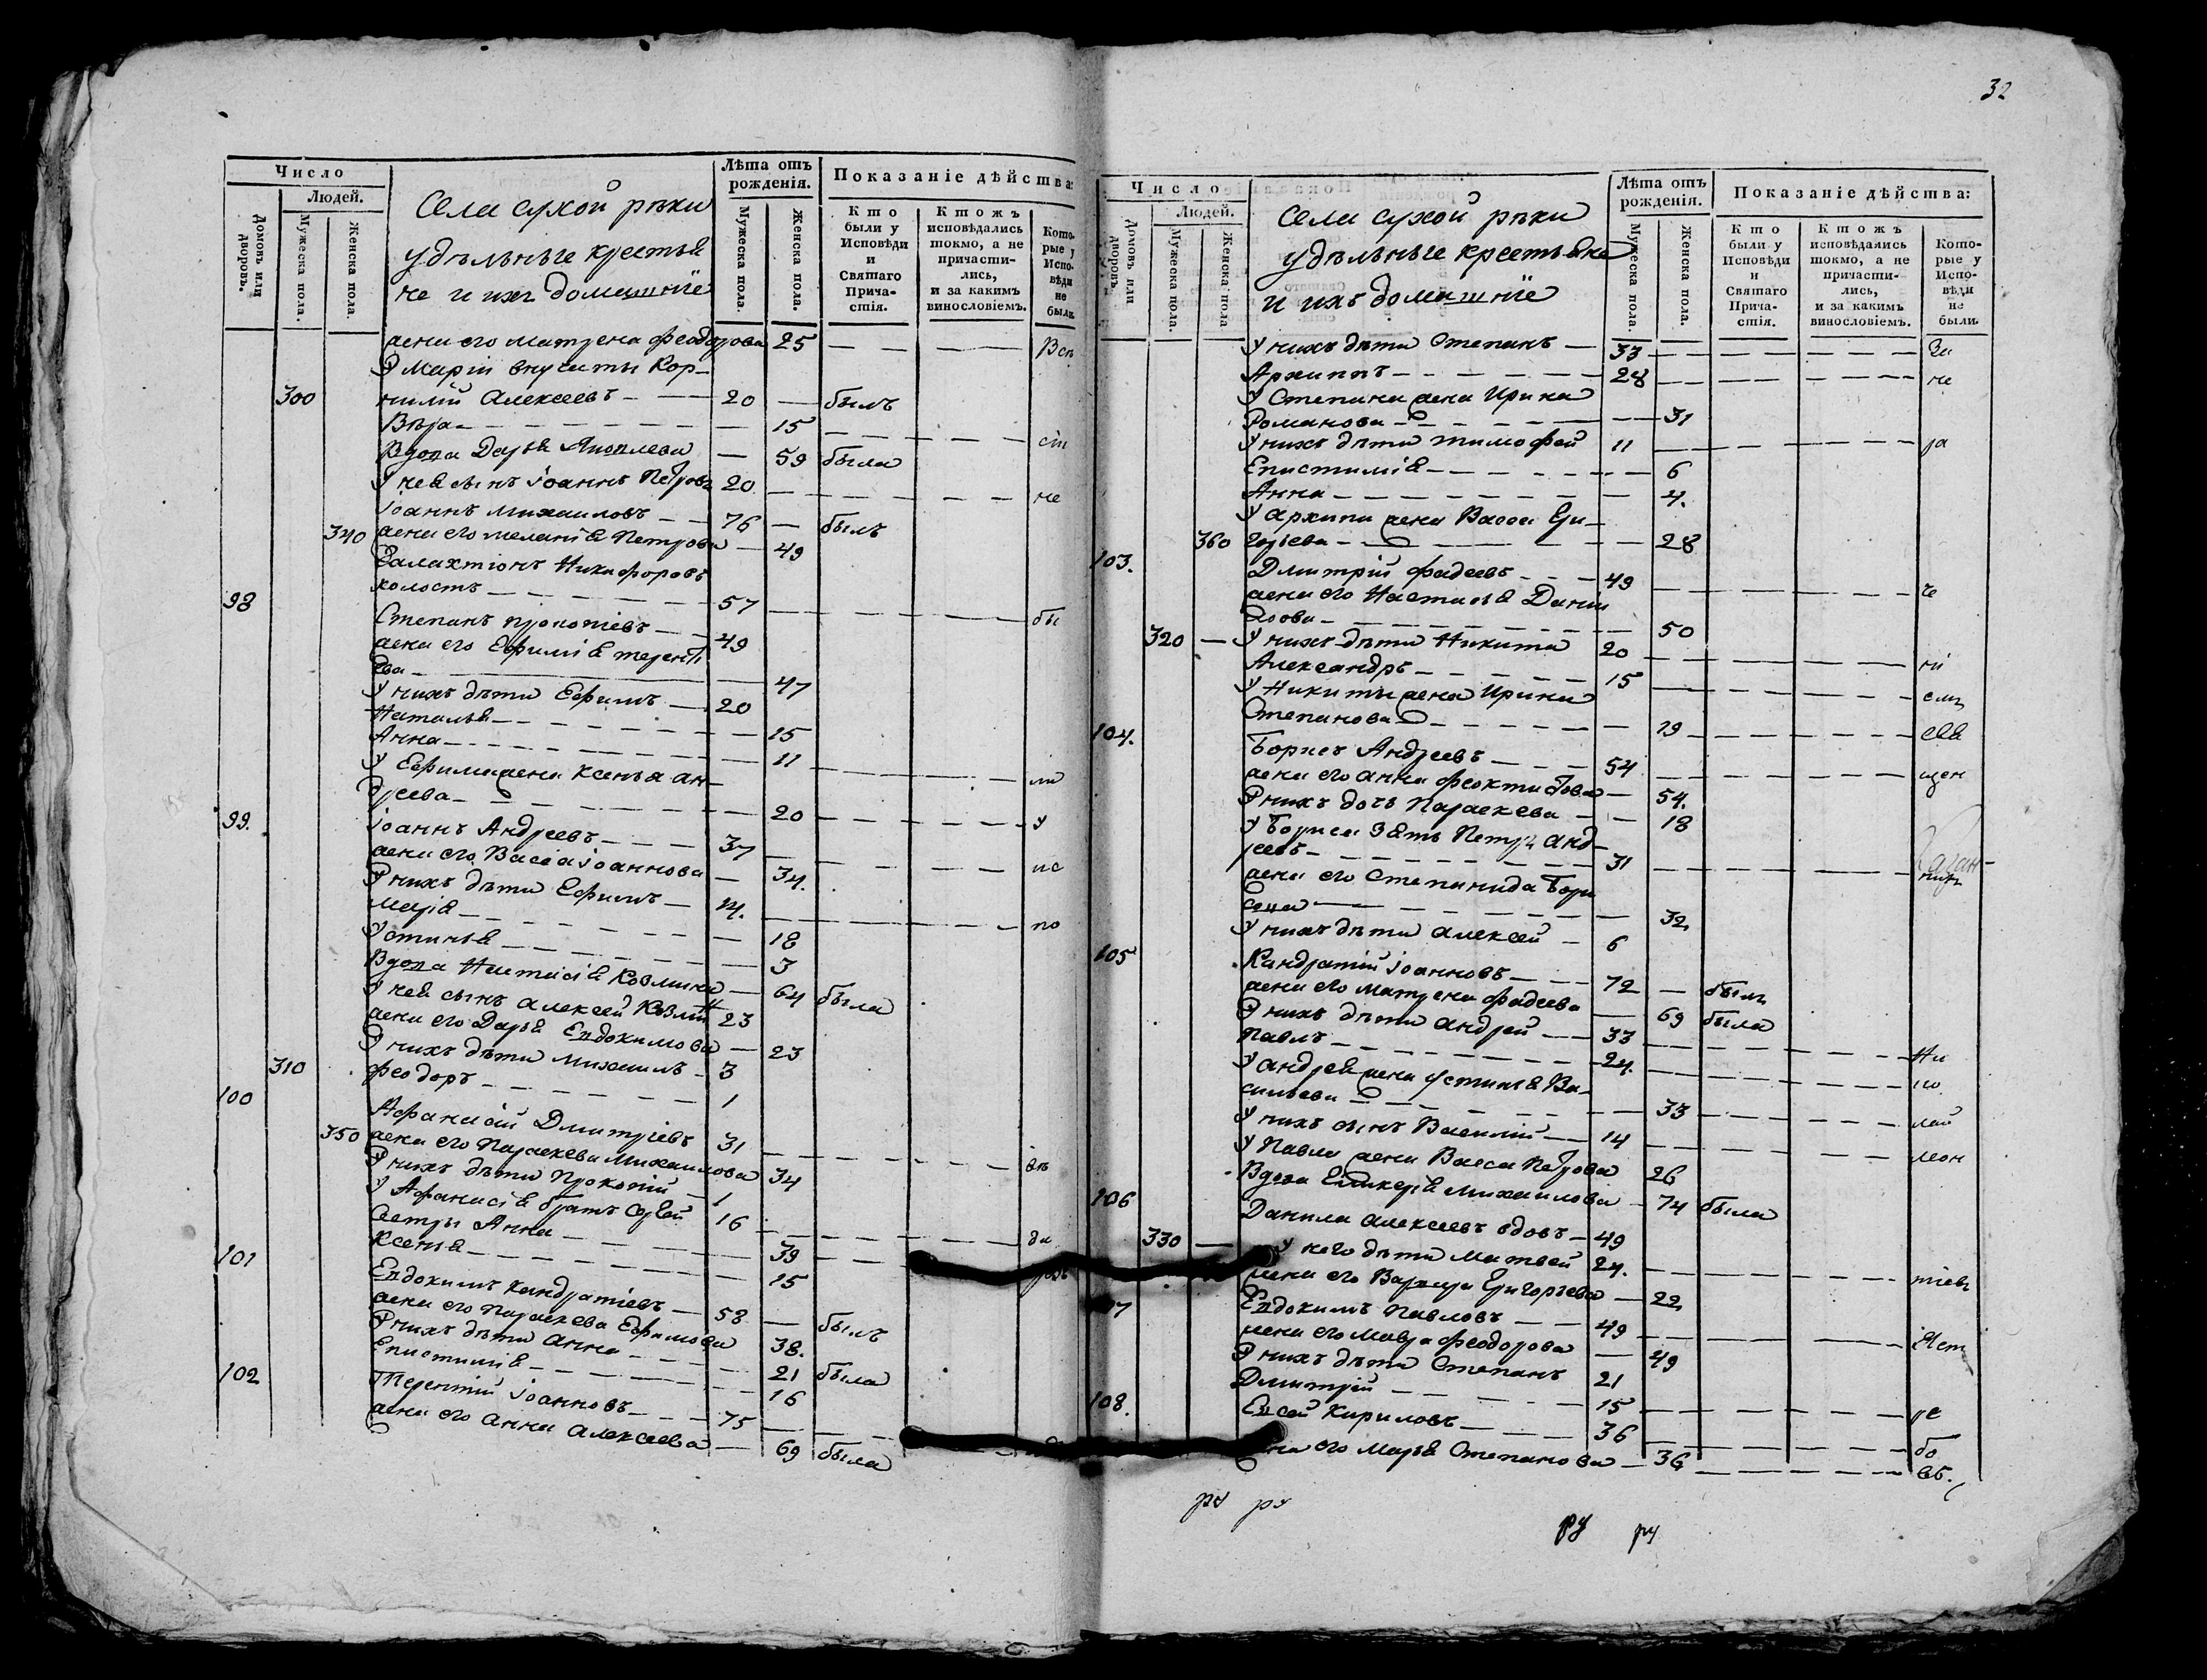 Число
Людей.
Домовъ или дворовъ.
Мужеска пола.
Женска пола.
Села сухой рѣки
удѣльные крестья
не и ихъ домашніе
Лѣта отъ рожденія.
Мужеска пола.
Женска пола.
Показаніе дѣйства:
Кто были у Исповѣди и Святаго Причастія.
Ктожъ исповѣдались токмо, а не причастились, и за какимъ винословіемъ.
Которые у Исповѣди не были.
жена его Матрена Феодорова 25 Всѣ
У Маріи внучаты Кор-
300 нилій Алексеевъ 20 былъ
Вѣра 15 сіи
Вдова Дарья Яковлева 59 была
У нея сынъ Іоаннъ Петровъ 20 не
Іоаннъ Михаиловъ 76 былъ
340 жена его Меланія Петрова 49
Галахтіонъ Никифоровъ
холостъ 57 бы
98 Степанъ Прокопіевъ 49
жена его Ефимія Терентi
ева 47
У нихъ дѣти Ефимъ 20
Наталья 15
Анна 11 ли
У Ефима жена Ксенья Ан-
дреева 20 у
99. Іоаннъ Андреевъ 37
жена его Васса Іоаннова 34. ис
У нихъ дѣти Ефимъ 14. по
Марія 18
Устинья 3
Вдова Настасія Козмина 64 была
У нея сынъ Алексей Козми 23
жена его Дарья Евдокимова 23
У нихъ дѣти Михаилъ 3
310 Феодоръ 1
100 Афанасій Дмитріевъ 31 вѣ
350 жена его Параскева Михаилова 34
У нихъ дѣти Прокопій 1
У Афанасія братъ Сергей 16 ди
Сестры Анна 39
Ксенья 15
101 Евдокимъ Кандратіевъ 58 былъ
жена его Параскева Ефимова 38.
У нихъ дѣти Анна 21 была
Епистимія 16
102 Терентій Іоанновъ 75
жена его Анна Алексеева 69 была
32
Число
Людей.
Домовъ или дворовъ.
Мужеска пола.
Женска пола
Села сухой рѣки
удѣльные крестьяне
и ихъ домашніе
Лѣта отъ рожденія.
Мужеска пола.
Женска пола.
Показаніе дѣйства:
Кто были у Исповѣди и Святаго Причастія.
Ктожъ исповѣдались токмо, а не причастились, и за какимъ винословіемъ.
Которые у Исповѣди не были.
У нихъ дѣти Степанъ 33 За
Архиппъ 28 не
У Степана жена Ирина
Романова 31
У нихъ дѣти Тимофей 11 ра
Епистимія 6
Анна 4.
У Архипа жена Васса Гри-
360 горьева 28
103. Дмитрій Фадеевъ 49 че
жена его Настасья Данiи
лова 50
320 У нихъ дѣти Никита 20 ні
Александръ 15 емъ
У Никиты жена Ирина
Степанова 19 свя
104. Борисъ Андреевъ 54 щен
жена его Анна Феоктистова 54.
У нихъ дочь Параскева 18
У Бориса зять Петръ Анд-
реевъ 31 никъ
жена его Степанида Бори
сова 32
У нихъ дѣти Алексей 6
105 Кандратій Іоанновъ 72 былъ
жена его Матрена Фадеева 69 была
У нихъ дѣти Андрей 33 Ни
Павлъ 24. ко
У Андрея жена Устинья Ва-
сильева 33 лай
У нихъ сынъ Василій 14 леон
У Павла жена Васса Петрова 26
Вдова Гликерія Михаилова 74 была
106 Данила Алексеевъ вдовъ 49
330 У него дѣти Матвей 24. тіевъ
жена его Варвара Григорьева 22
107 Евдокимъ Павловъ 49 Яст
жена его Мавра Феодорова 49
У нихъ дѣти Степанъ 21
Дмитрій 15 ре
108. Евсей Кириловъ 36 бо
жена его Марья Степанова 36 въ.
ру ру
ру ру